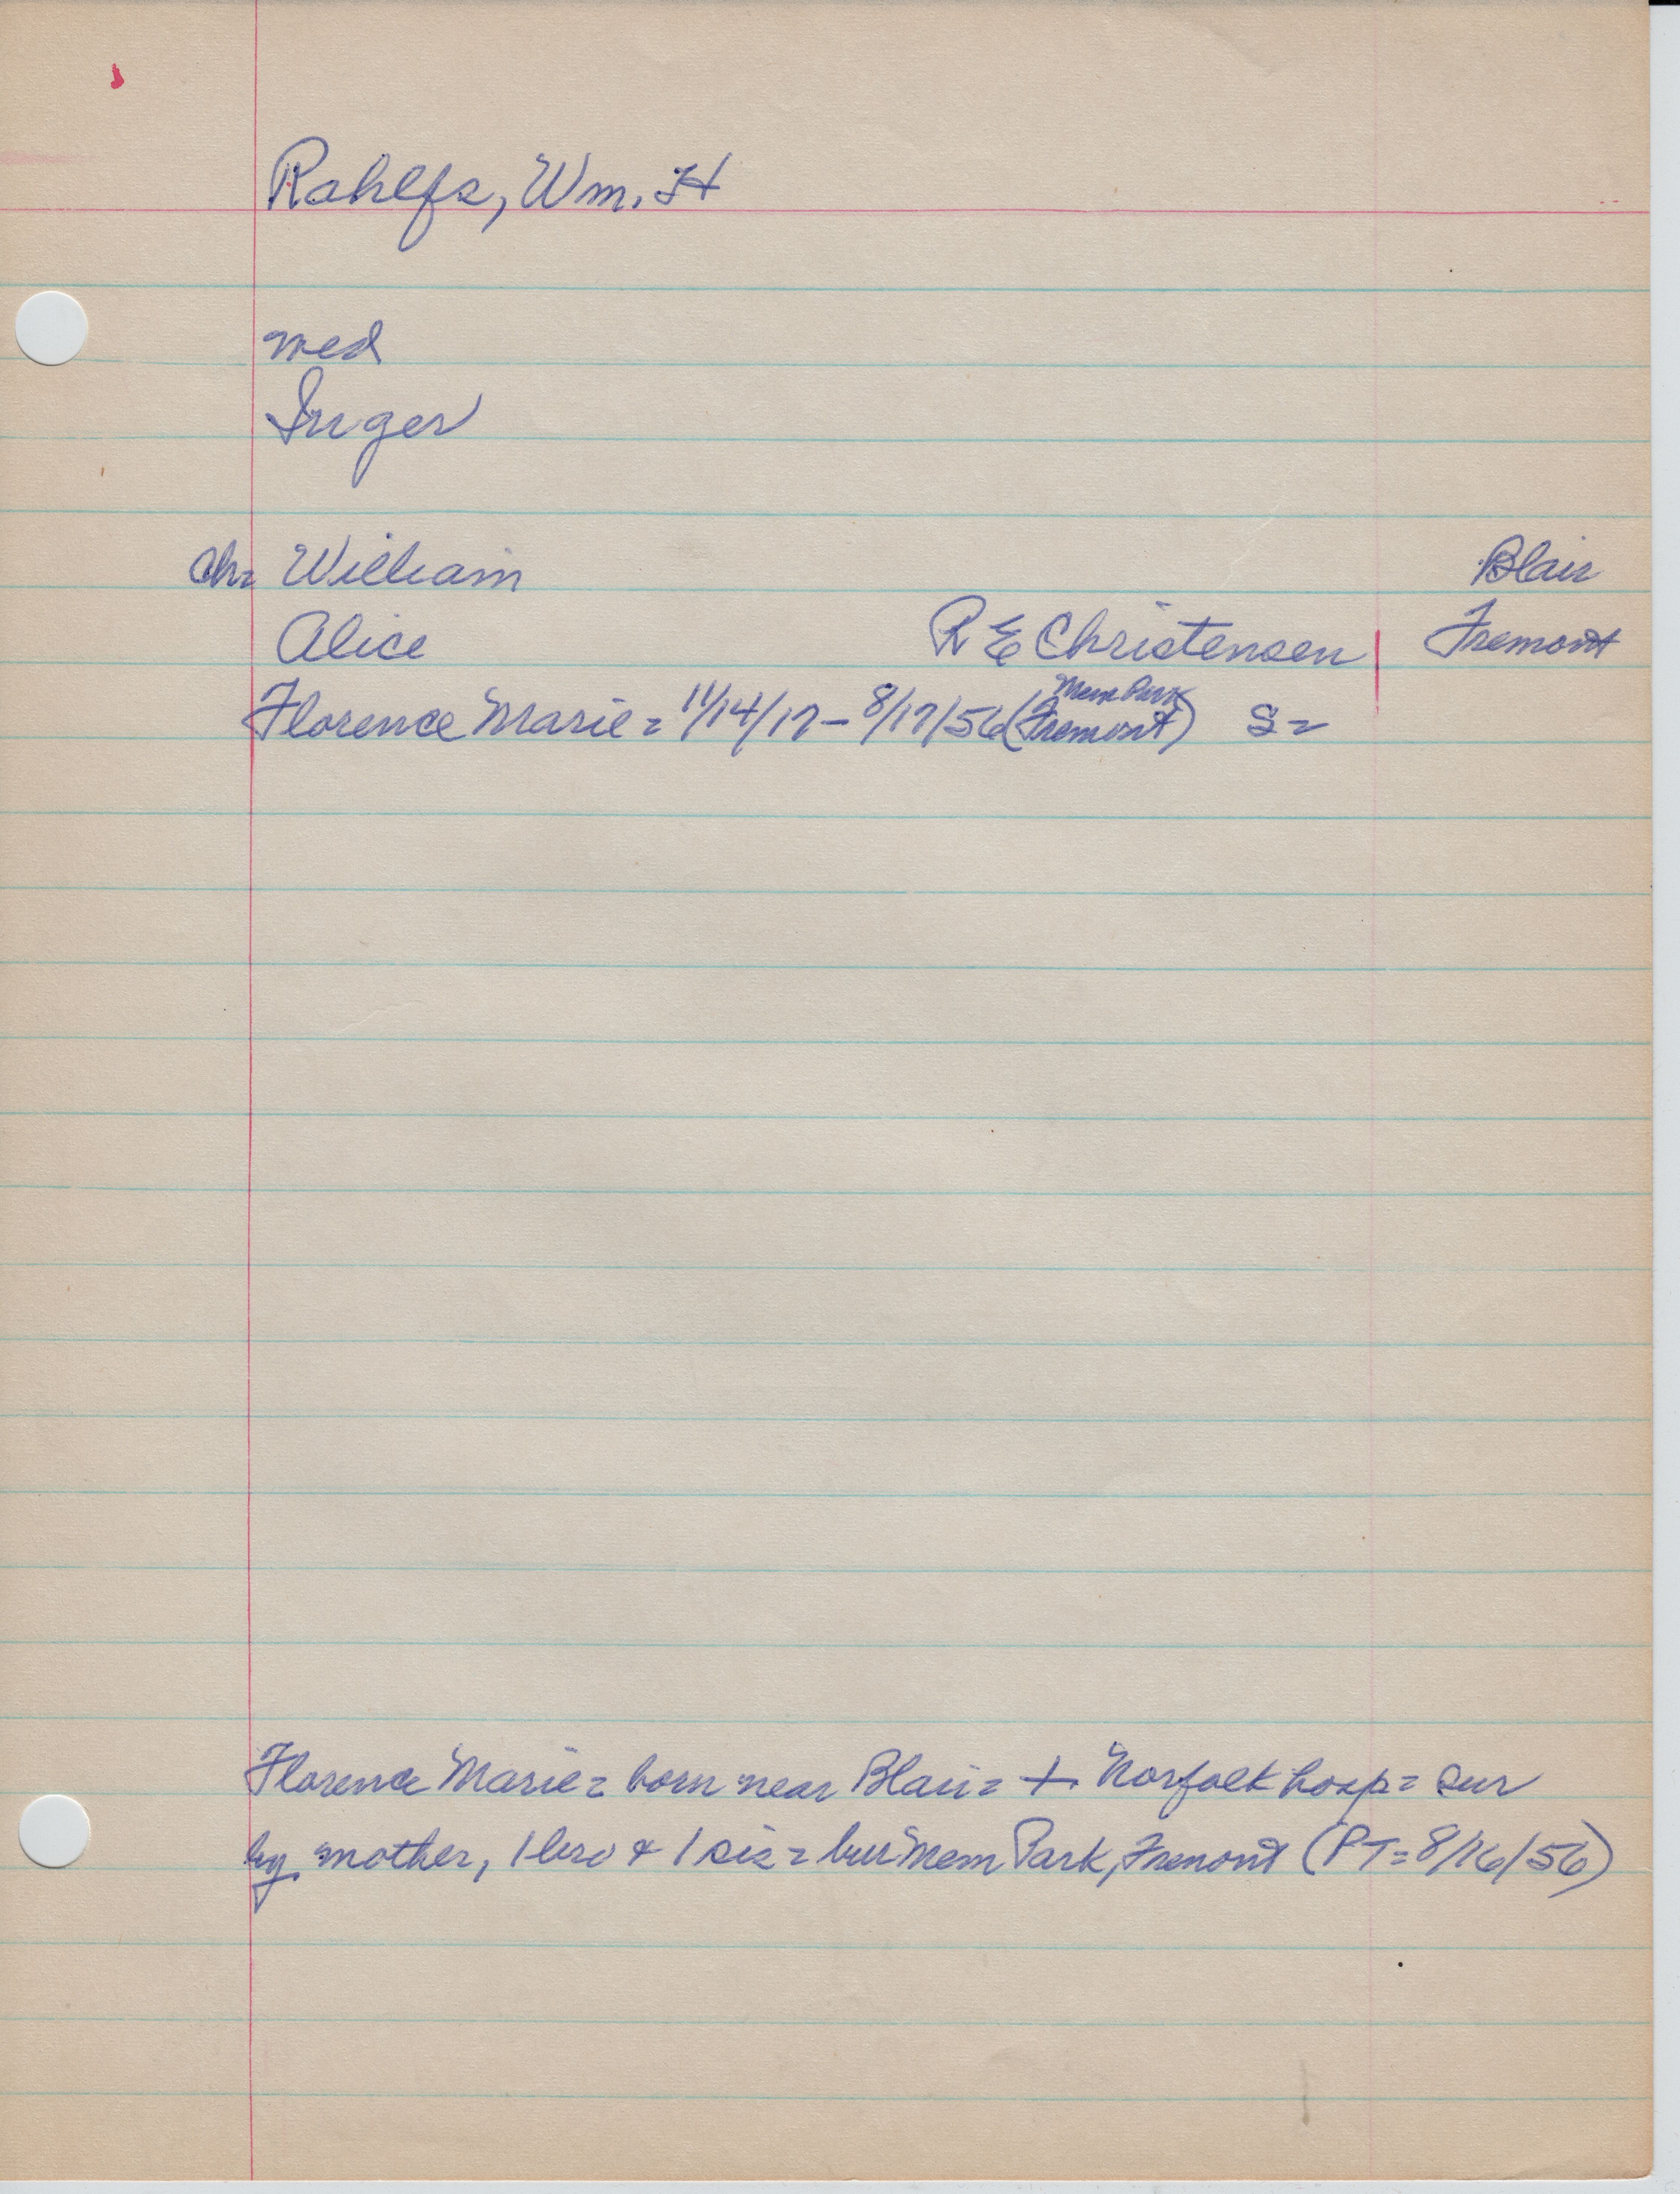 Rahlfs, Wm. H
med
Inger
ch= William Blair
Alice R E Christensen Fremont
Florence Marie = 11/14/17 - 8/17/56 (Mem Park Fremont) S=
Florence Marie = born near Blair = + Norfolk hosp = sur
by mother, 1 bro & 1 sis = bur Mem Park, Fremont (PT = 8/16/56)